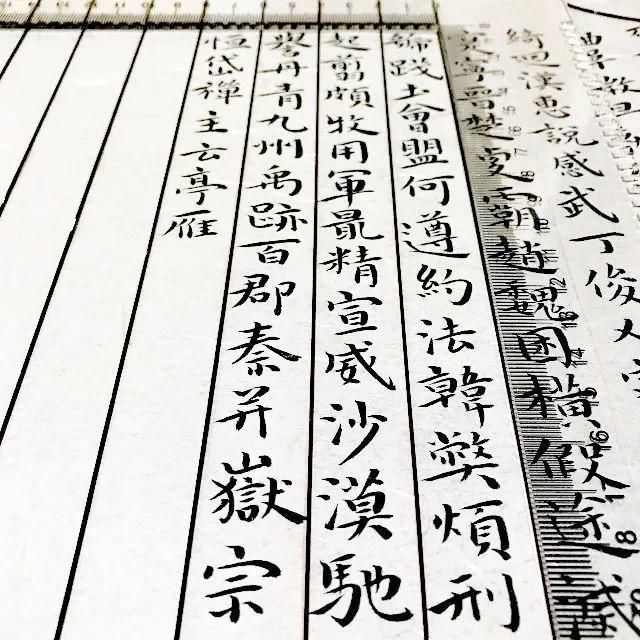 綺迴漢惠說感武丁俊乂密
寔寧晉楚更霸趙魏困橫假途滅
虢踐土會盟何遵約法韓弊煩刑
起翦頗牧用軍最精宣威沙漠馳
譽丹青九州禹跡百郡秦并嶽宗
恒岱禪主云亭雁